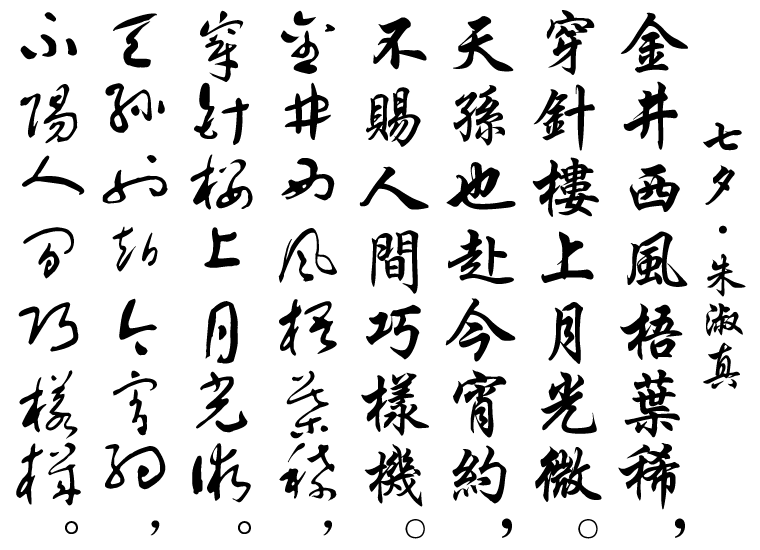 七夕·朱淑真
金井西風梧葉稀，
穿針樓上月光微。
天孫也赴今宵約，
不賜人間巧樣機。
金井西風梧葉稀，
穿針樓上月光微。
天孫也赴今宵約，
不賜人間巧樣機。